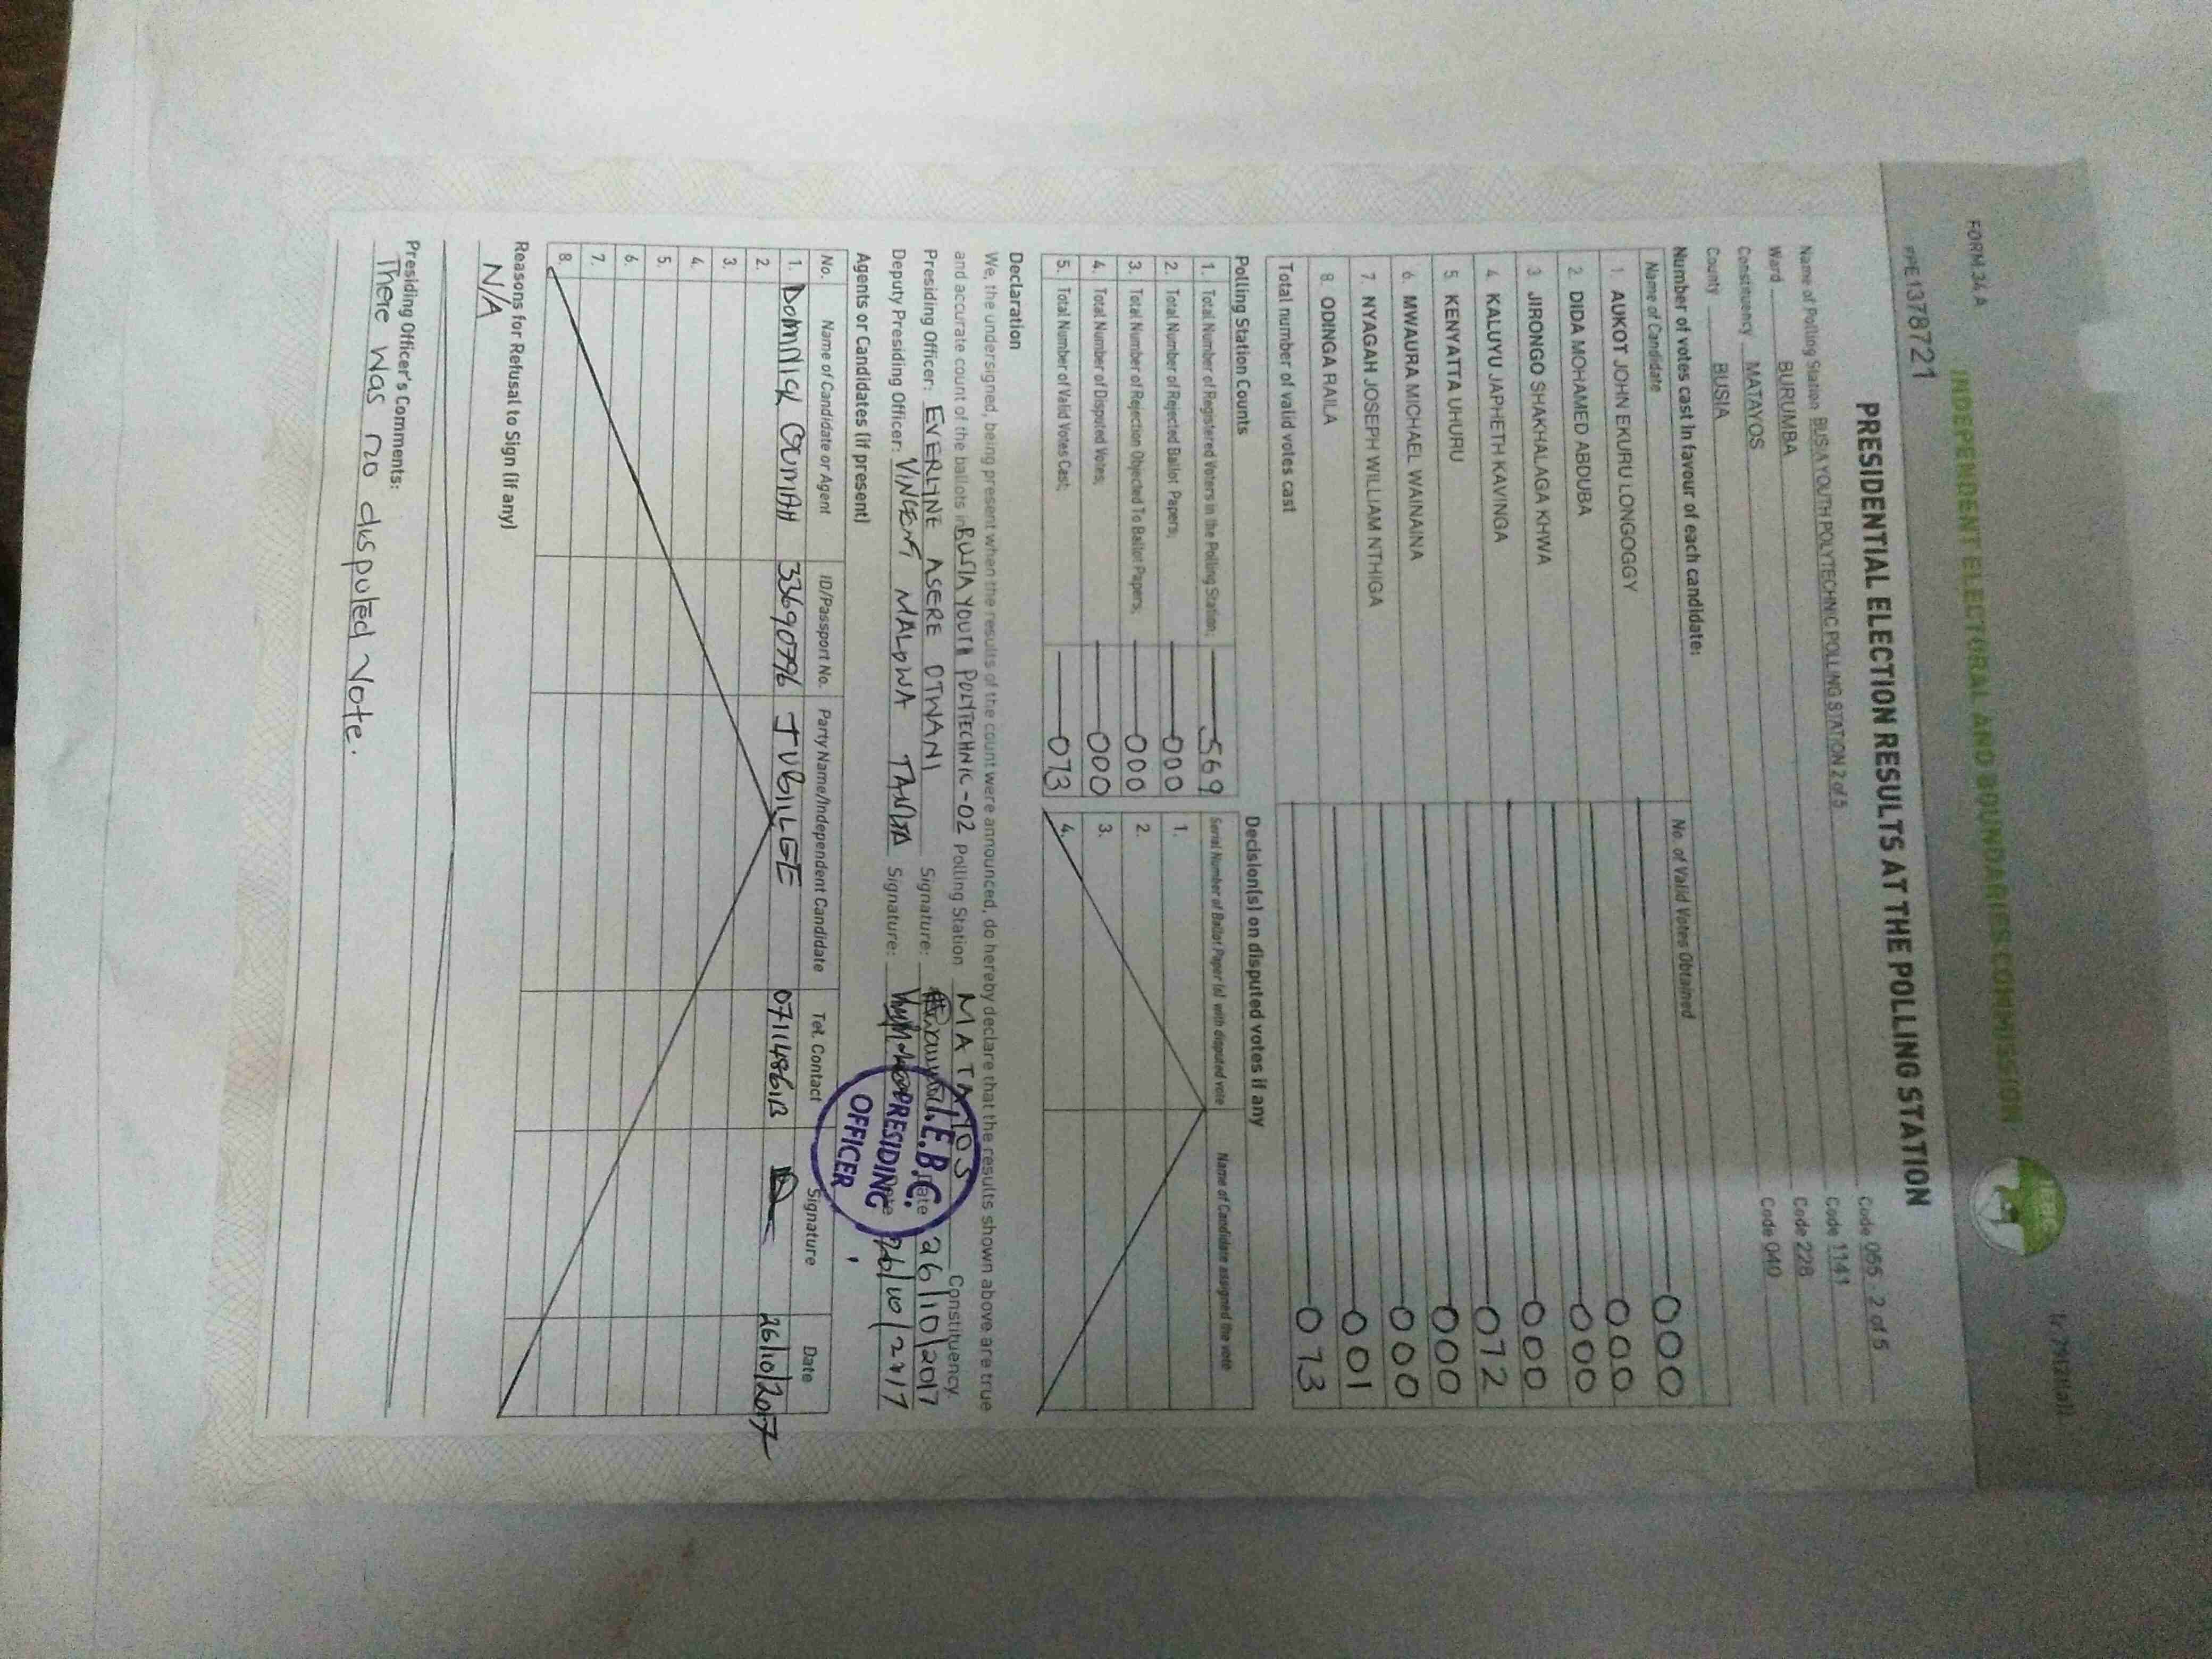 FORM 34 A
INDEPENDENT ELECTORAL AND BOUNDARIES COMMISSION
IEBC
PRE1378721
PRESIDENTIAL ELECTION RESULTS AT THE POLLING STATION
Name of Polling Station BUSIA YOUTH POLYTECHNIC POLLING STATION 2 of 5 Code 055 2 of 5
Ward BURUMBA Code 1141
Constituency MATAYOS Code 228
County BUSIA Code 040
Number of votes cast in favour of each candidate:
Name of Candidate No. of Valid Votes Obtained
1. AUKOT JOHN EKURU LONGOGGY 000
2. DIDA MOHAMED ABDUBA 000
3 JIRONGO SHAKHALAGA KHWA 000
4. KALUYU JAPHETH KAVINGA 000
5. KENYATTA UHURU 072
6. MWAURA MICHAEL WAINAINA 000
7. NYAGAH JOSEPH WILLIAM NTHIGA 000
8. ODINGA RAILA 001
Total number of valid votes cast 073
Polling Station Counts Decision(s) on disputed votes if any
Serial Number of Ballot Paper (s) with disputed vote Name of Candidate assigned the vote
1. Total Number of Registered Voters in the Polling Station; 569 1.
2. Total Number of Rejected Ballot Papers; 000 2.
3. Total Number of Rejection Objected To Ballot Papers; 000 3.
4. Total Number of Disputed Votes; 000 4.
5. Total Number of Valid Votes Cast; 073
Declaration
We, the undersigned, being present when the results of the count were announced, do hereby declare that the results shown above are true
and accurate count of the ballots in BUSIA YOUTH POLYTECHNIC - 02 Polling Station MATAYOS Constituency.
Presiding Officer: EVERLINE ASERE OTWANI Signature: Date 26/10/2017
Deputy Presiding Officer: VINCENT MALOWA Signature: Date 26/10/2017
I.E.B.C.
PRESIDING
OFFICER
Agents or Candidates (if present)
No. Name of Candidate or Agent ID/Passport No. Party Name/Independent Candidate Tel. Contact Signature Date
1. DOMINICK OUMAH 33690796 JUBILEE 26/10/2017
2.
3.
4.
5.
6.
7.
8.
Reasons for Refusal to Sign (if any)
N/A
Presiding Officer's Comments:
There was no disputed vote.